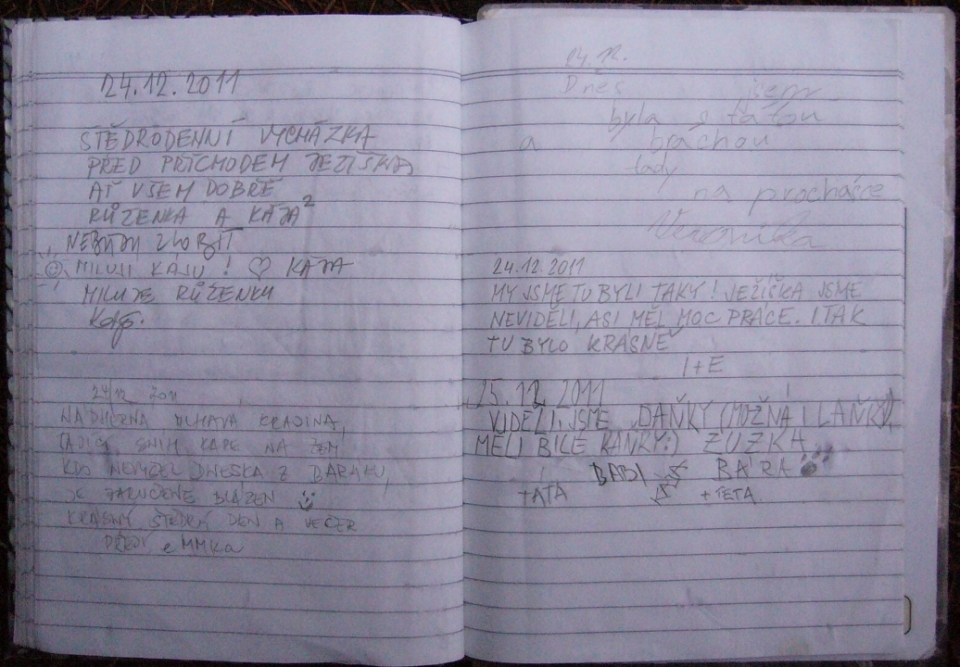 24.12.2011
ŠTĚDRODENNÍ VYCHÁZKA
PŘED PŘÍCHODEM JEŽÍŠKA
AŤ VŠEM DOBŘE
RŮŽENKA A KÁJA²
ZLOBIT
MILUJI KÁJU! ♡ KÁJA
MILUJE RŮŽENKU
24/12 2011
KRAJINA,
SNÍH KAPE NA ZEM
KDO NEVYŠEL DNESKA Z BARÁKU,
JE ZARUČENĚ BLÁZEN
KRÁSNÝ ŠTĚDRÝ DEN A VEČER
PŘEJI eMMKa
24.12.
Dnes jsem
byla s tátou
a bráchou
tady
na procházce
Veronika
24.12.2011
MY JSME TU BYLI TAKY! JEŽÍŠKA JSME
NEVIDĚLI, ASI MĚL MOC PRÁCE. I TAK
TU BYLO KRÁSNĚ
I+E
25.12.2011
VIDĚLI JSME DAŇKY (MOŽNÁ I LAŇKY),
MĚLI BÍLÉ KAŇKY:) ZUZKA
BABI BÁRA
TÁTA + TETA